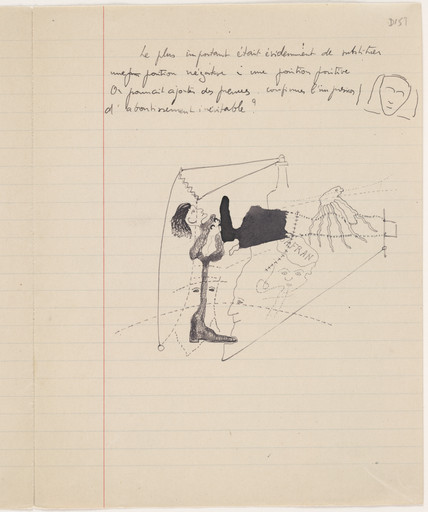 D157
Le plus important était évidemment de substituer
une position négative à une position positive
On pourrait ajouter des preuves confirmer l'impression
d'aboutissement inévitable ?
AFRAN